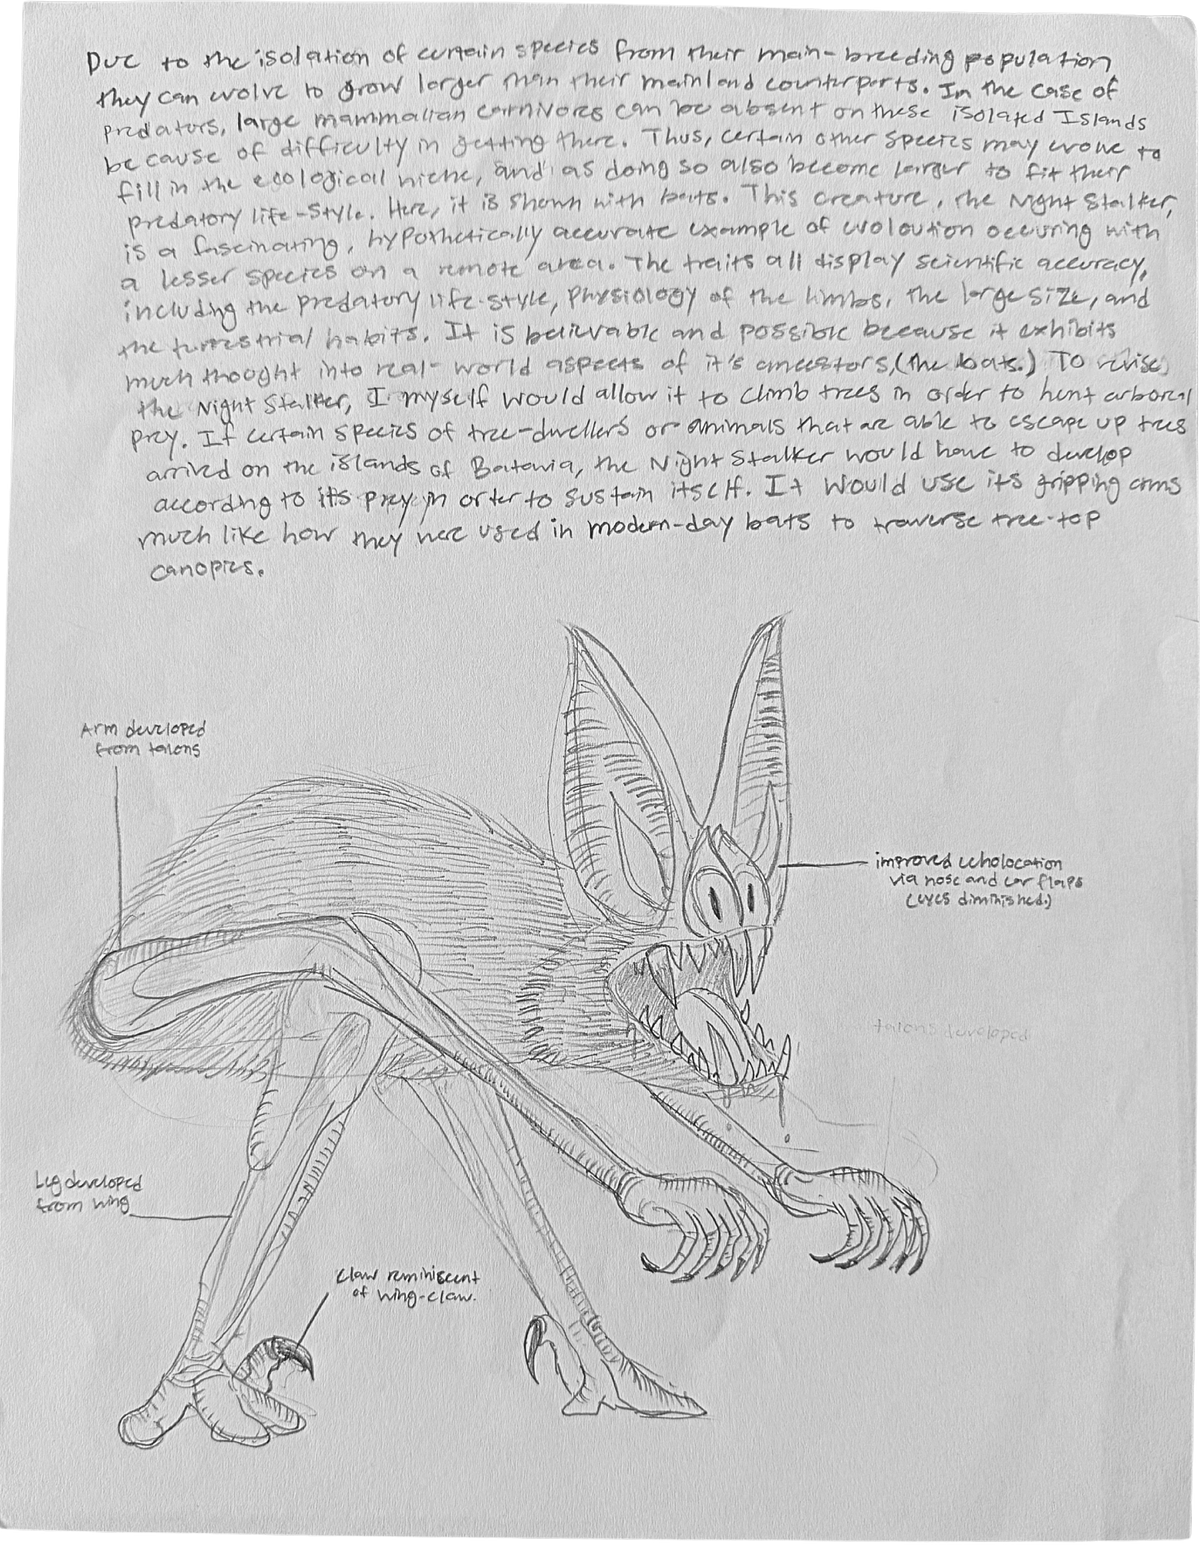 Due to the isolation of certain species from their main-breeding population
they can evolve to grow larger than their mainland counterparts. In the case of
predators, large mammalian carnivores can be absent on these isolated Islands
because of difficulty in getting there. Thus, certain other species may evolve to
fill in the ecological niche, and as doing so also become larger to fit their
predatory life-style. Here, it is shown with bats. This creature, the Night Stalker,
is a fascinating, hypothetically accurate example of evoloution occuring with
a lesser species on a remote area. The traits all display scientific accuracy,
including the predatory life-style, Physiology of the limbs, the large size, and
the terrestrial habits. It is believable and possible because it exhibits
much thought into real-world aspects of it's ancestors, (the bats.) To revise
the Night Stalker, I myself would allow it to climb trees in order to hunt arboreal
prey. If certain species of tree-dwellers or animals that are able to escape up trees
arrived on the islands of Batavia, the Night Stalker would have to develop
according to its prey in order to sustain itself. It would use its gripping arms
much like how they were used in modern-day bats to traverse tree-top
canopies.
Arm developed
from talons
improved echolocation
via nose and ear flaps
(eyes diminished.)
talons developed
Leg developed
from wing
Claw reminiscent
of wing-claw.